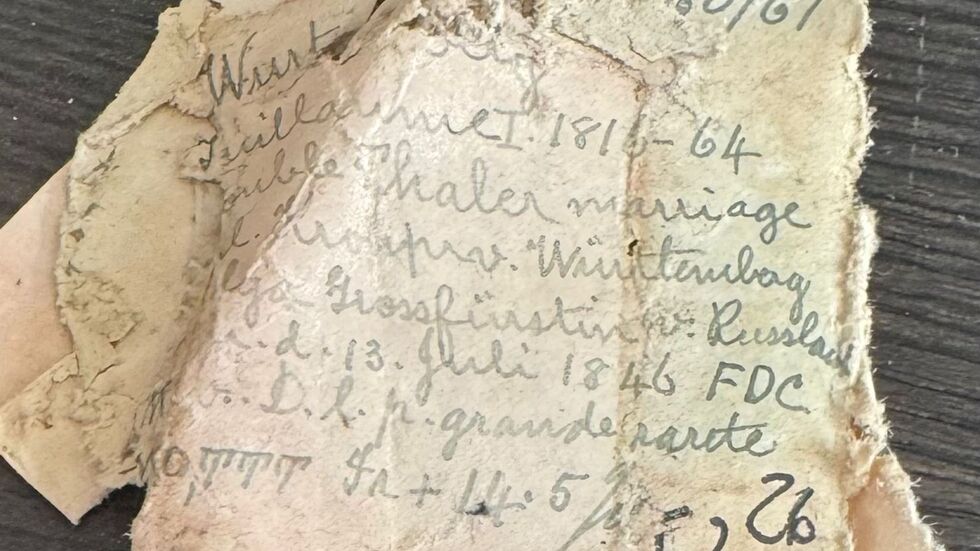 60/61
Wurt
Guillaume I. 1816-64
ouble Thaler marriage
Kronprv. Würtembag
lga Grossfürstin v. Russlan
d. 13. Juli 1846 FDC
D. l. p. grande rarete
Fr + 14.5
26